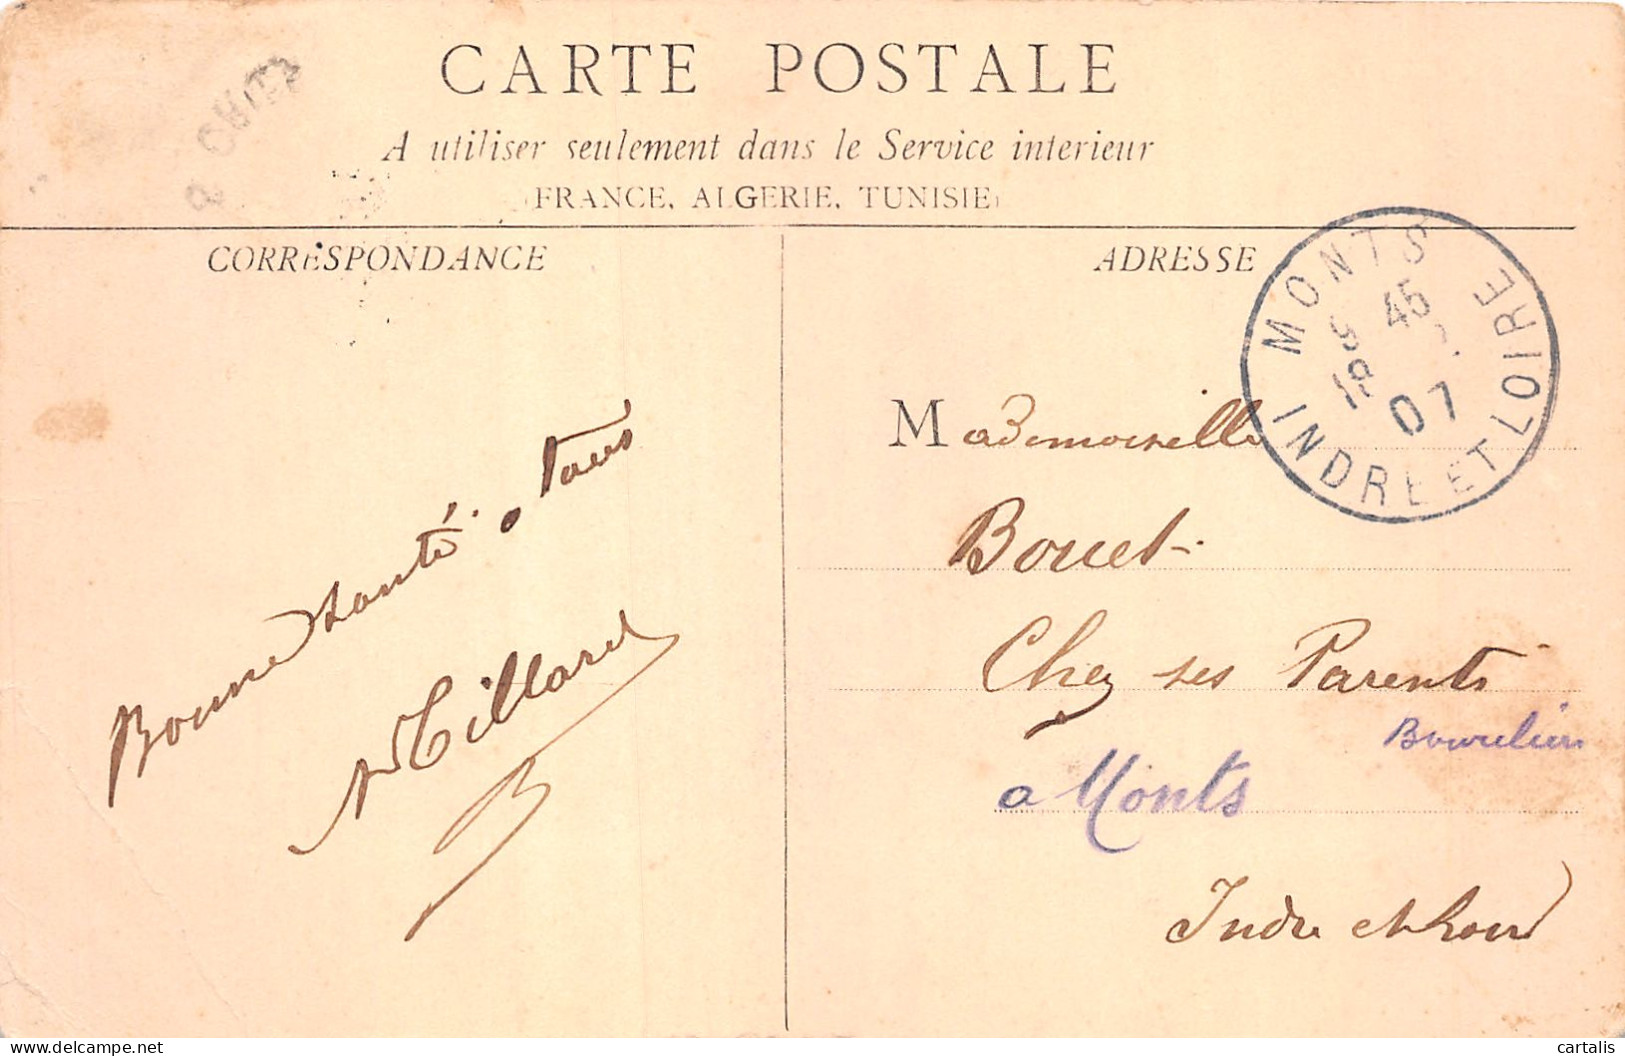 CARTE POSTALE
A utiliser seulement dans le Service intérieur
(FRANCE, ALGERIE, TUNISIE)
CORRESPONDANCE
ADRESSE
MONTS
45
07
INDRE ET LOIRE
Bonne santé a tous
Tillard
Mademoiselle
Bouet
Chez ses Parents
a Monts
Indre et Loire
delcampe.net
cartalis